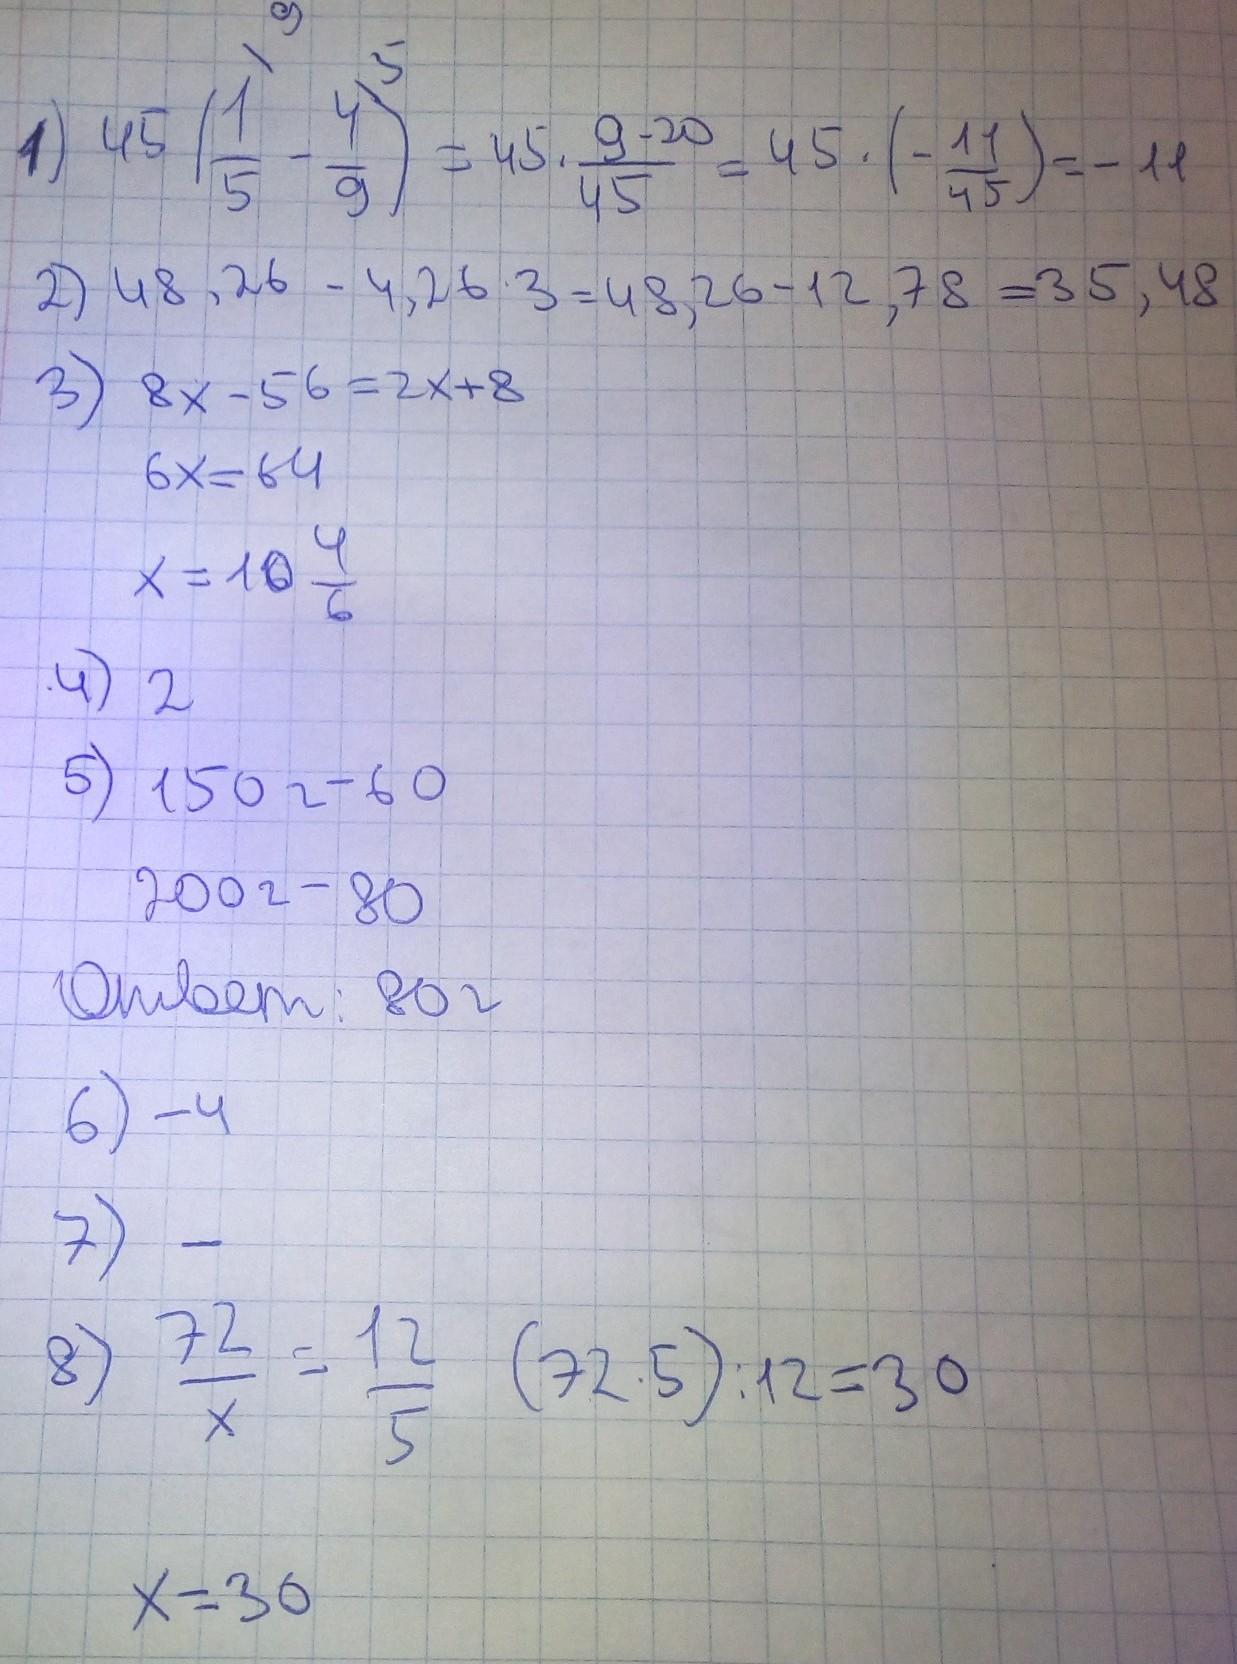 1) 45 (1/5 \9 - 4/9 \5) = 45 · (9-20)/45 = 45 · (-11/45) = -11
2) 48,26 - 4,26·3=48,26-12,78=35,48
3) 8x-56=2x+8
6x=64
x=10 4/6
4) 2
5) 150г-60
200г-80
Ответ: 80г
6) -4
7) -
8) 72/x = 12/5 (72·5):12=30
x=30